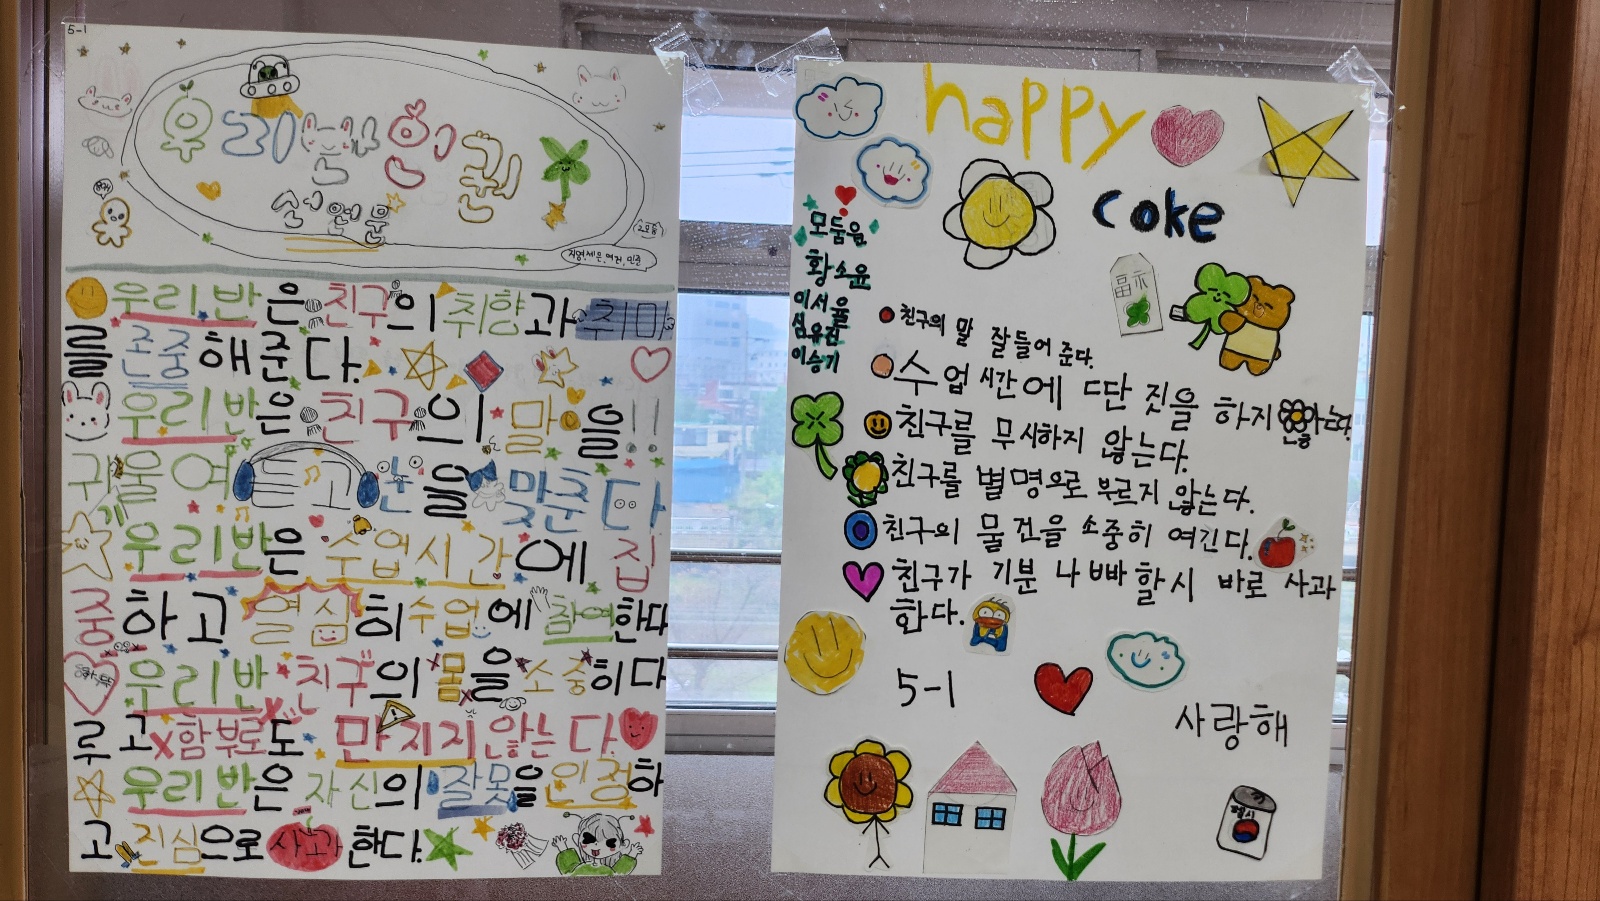 5-1
우리반의 인권
선언문
2모둠
우리반은 친구의 취향과 취미
를 존중해준다.
우리반은 친구의 말을!!
귀울여 듣고 눈을 맞춘다
우리반은 수업시간에 집
중하고 열심히 수업에 참여한다
우리반 친구의 물을 소중히 다
루고 함부로도 만지지 않는다.
우리반은 자신의 잘못을 인정하
고 진심으로 사과 한다.
happy
coke
모둠원
황소윤
이서율
심유진
이승기
친구의 말 잘 들어 준다.
수업 시간에 딴 짓을 하지 않는다.
친구를 무시하지 않는다.
친구를 별명으로 부르지 않는다.
친구의 물건을 소중히 여긴다.
친구가 기분 나빠 할시 바로 사과
한다.
5-1
사랑해
펩시